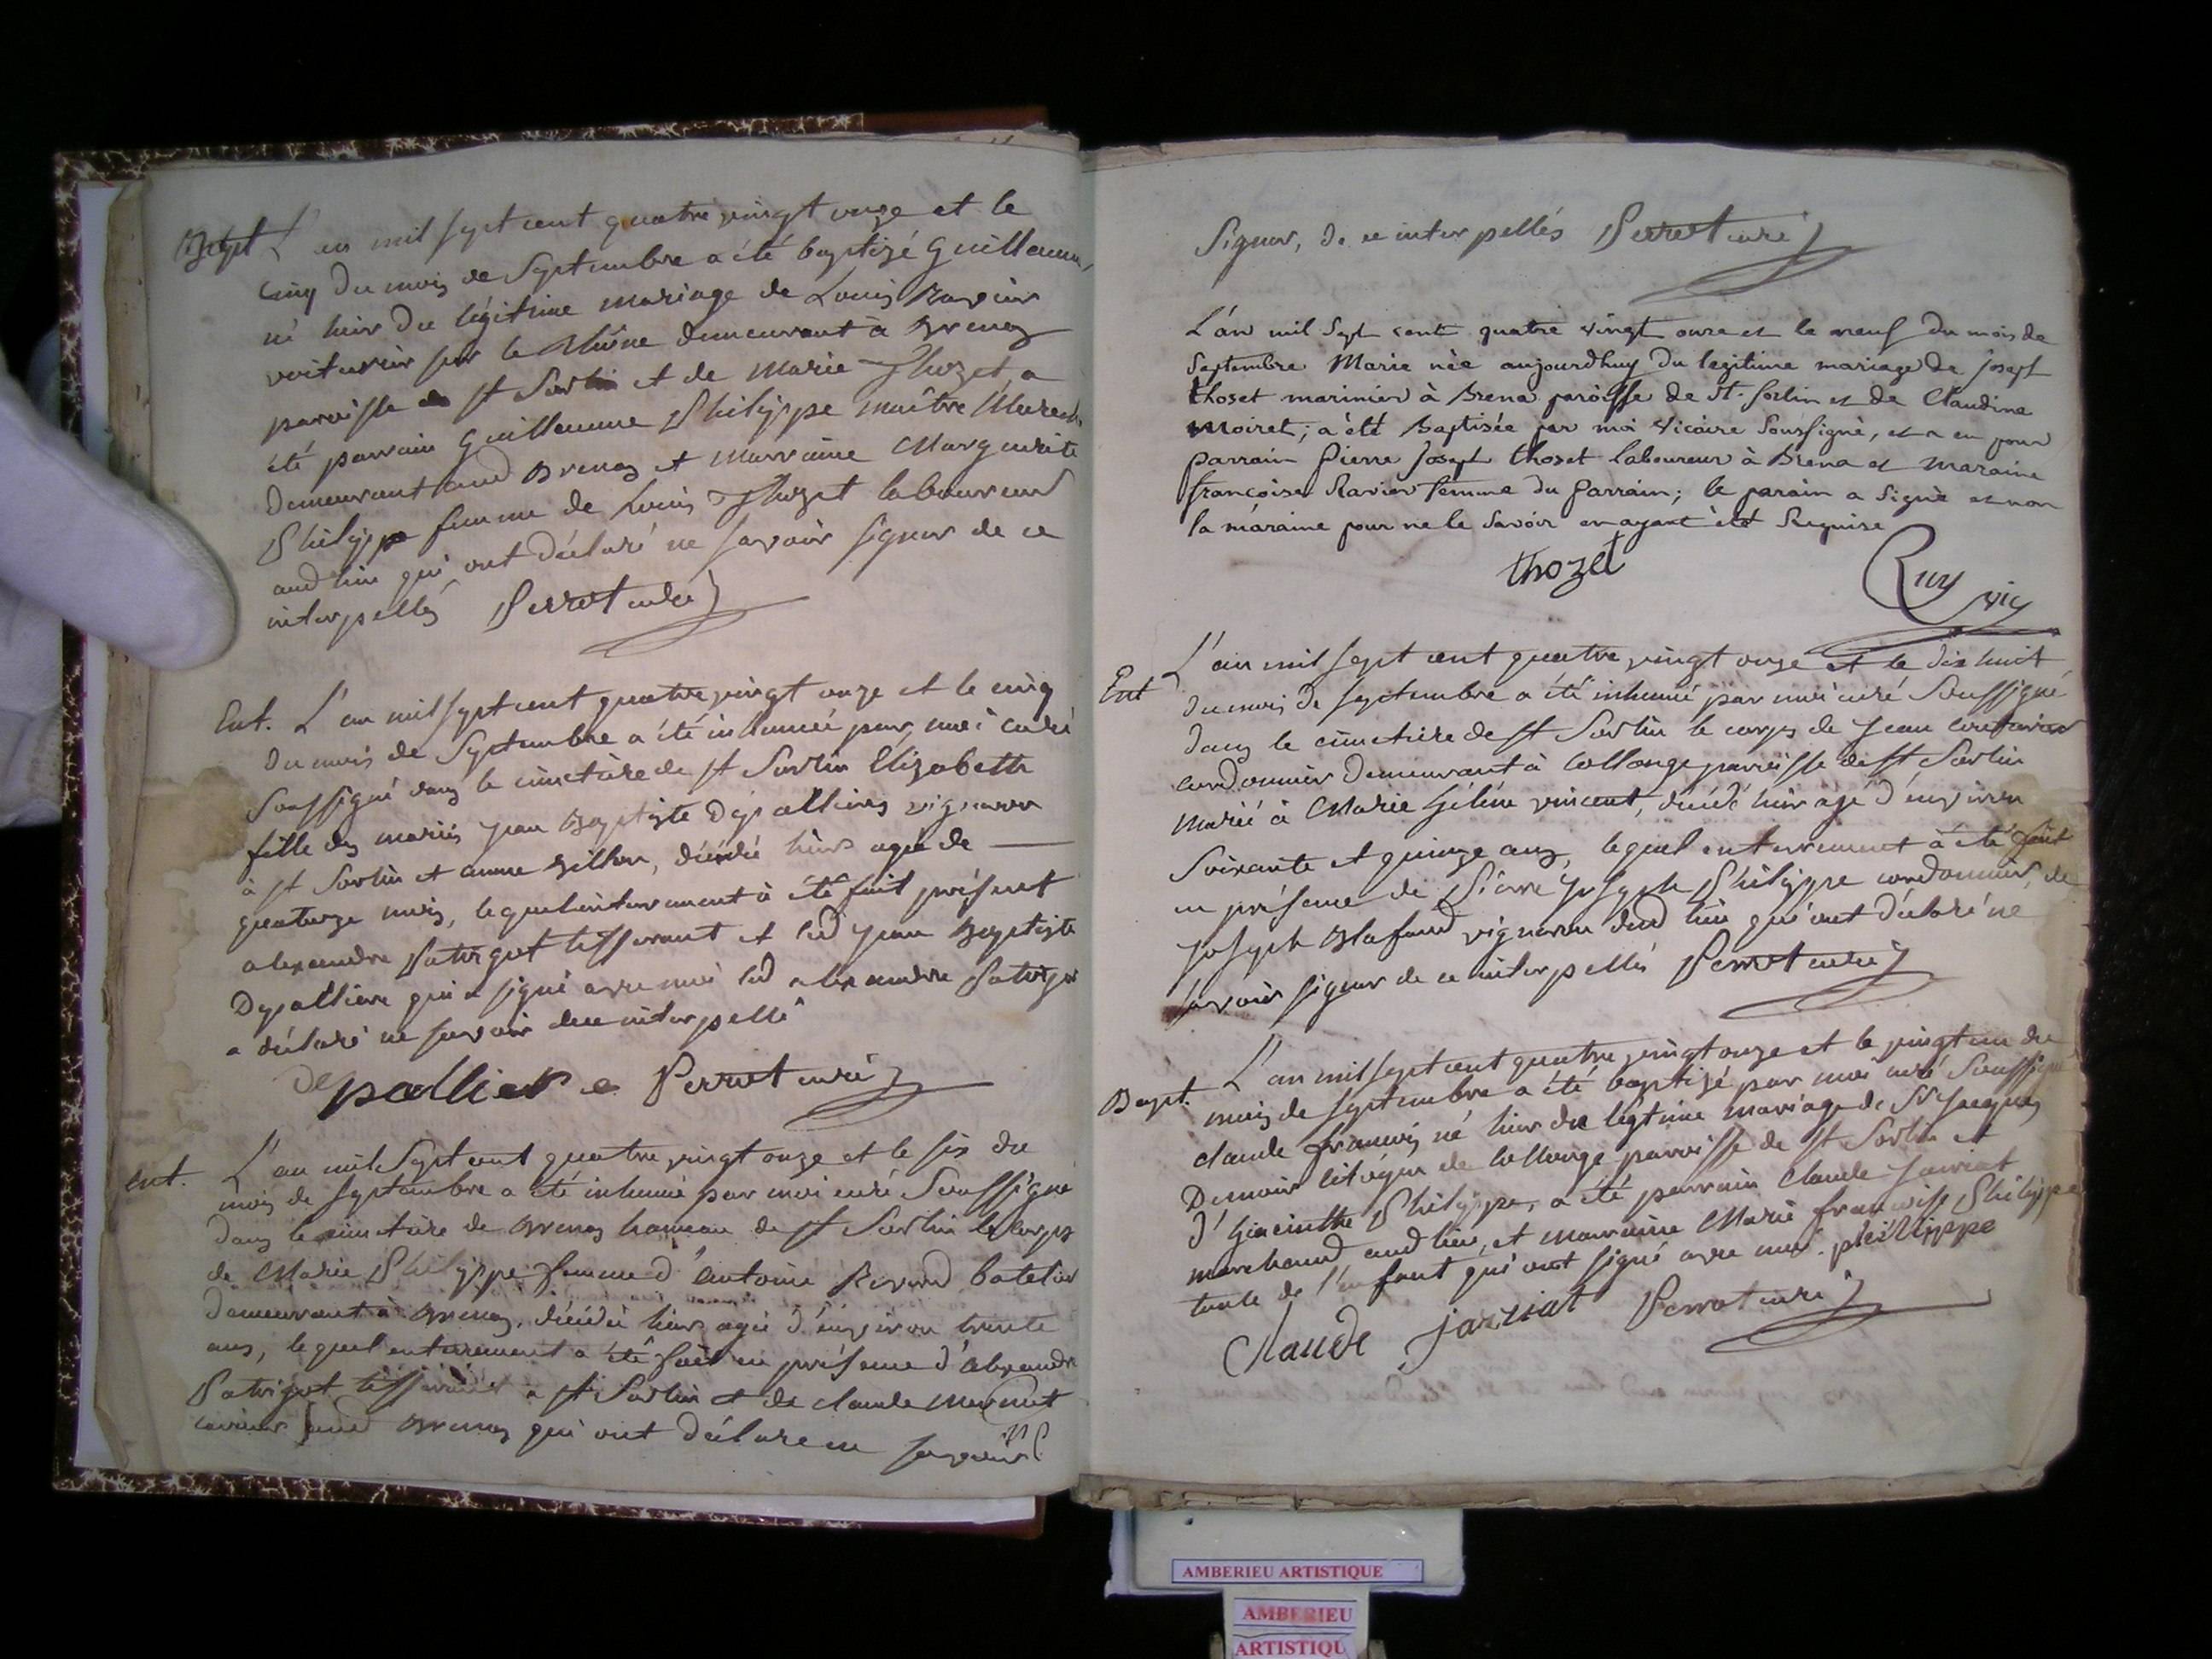 Bapt L'an mil sept cent quatre vingt onze et le
cinq du mois de Septembre a été baptizé Guillaume,
né hier du légitime mariage de Louis Ravier
voiturier sur le Rhône demeurant à Brenaz
paroisse de st Sorlin et de Marie Thozet, a
été parrain Guillaume Philippe maître
demeurant aud Brenaz et marraine Marguerite
Philippe femme de Louis Thozet laboureur
aud lieu qui ont déclaré ne savoir signer de ce
interpellés Perrot curé
Ent. L'an mil sept cent quatre vingt onze et le cinq
du mois de Septembre a été inhumée par moi curé
soussigné dans le cimetière de st Sorlin Elizabeth
fille des mariés Jean Baptiste Depallieres vigneron
à st Sorlin et anne, décédée hier agée de
quatorze mois, lequel enterrement à été fait présent
alexandre Patrigot tisserant et led Jean Baptiste
Depalliere qui a signé avec moi led alexandre Patrigot
a déclaré ne savoir de ce interpellé
depalliere Perrot curé
Ent. L'an mil Sept cent quatre vingt onze et le six du
mois de septembre a été inhumé par moi curé Soussigné
dans le cimetière de Brenaz hameau de st Sorlin le corps
de Marie Philippe femme d'Antoine batelier
demeurant à Brenaz, décédée hier agée d'environ trente
ans, lequel enterrement a été fait en présence d'alexandre
Patrigot tisserant à st Sorlin et de claude
aud Brenaz qui ont déclaré ne savoir
Signer, de ce interpellés Perrot curé
L'an mil Sept cent quatre vingt onze et le neuf du mois de
Septembre Marie née aujourdhuy du legitime mariage de Joseph
thozet marinier à Brena paroisse de St. Sorlin et de Claudine
Moiret; a été Baptisée par moi vicaire Soussigné, et a eu pour
parrain pierre Joseph thozet laboureur à Brena et maraine
françoise Ravier femme du parrain; le parain a signé et non
la maraine pour ne le savoir en ayant été Requise
thozet Ruy vic
Ent L'an mil sept cent quatre vingt onze et le dix huit
du mois de septembre a été inhumé par moi curé Soussigné
dans le cimetière de st Sorlin le corps de Jean
cordonnier demeurant à Collonge paroisse de st Sorlin
marié à Marie Hélène vincent, décédé hier agé d'environ
Soixante et quinze ans, lequel enterrement à été fait
en présence de Pierre Joseph Philippe cordonnier, de
Joseph Blafand vigneron dud lieu qui ont déclaré ne
savoir signer de ce interpellés Perrot curé
Bapt. L'an mil sept cent quatre vingt onze et le vingt un du
mois de septembre a été baptizé par moi curé Soussigné
claude françois né hier du légitime mariage de Sr Jacques
Demoir citoyen de Collonge paroisse de st Sorlin et
d'Hiacinthe Philippe, a été parrain Claude Jarriat
marchand aud lieu, et marraine Marie françoise Philippe
tante de l'enfant qui ont signé avec moi. philippe
Claude jarriat Perrot curé
AMBERIEU ARTISTIQUE
AMBERIEU
ARTISTIQU